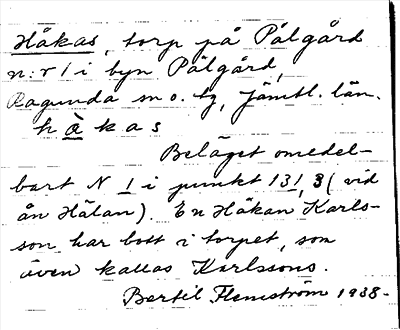 Håkas, torp på Pålgård
n:r 1 i byn Pålgård,
Ragunda sn o. tg, Jämtl. län.
håkas
Beläget omedel-
bart N 1 i punkt 131,3 (vid
ån Hälan). En Håkan Karls-
son har bott i torpet, som
även kallas Karlssons.
Bertil Flemström 1938.